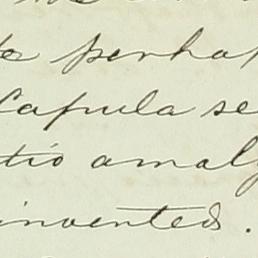 te perhap
Capula se
tio amalg
invented.